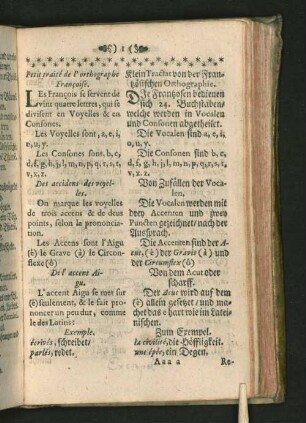 1
Petit traité de l'orthographe
Françoise.
LEs François se servent de
vint quatre lettres, qui se
divisent en Voyelles & en
Consones.
Les Voyelles sont, a, e, i,
o, u, y.
Les Consones sont b, c,
d, f, g, h, j, l, m, n, p, q, r, s, t,
v, x, z.
Des accidens des voyel-
les.
On marque les voyelles
de trois accens & de deux
points, selon la prononcia-
tion.
Les Accens sont l'Aigu
(é) le Grave (è) le Circon-
flexe (ô)
De l'accent Ai-
gu.
L'accent Aigu se met sur
(é) seulement, & le fait pro-
noncer un peu dur, comme
le des Latins:
Exemple.
écrivés, schreibet/
parlés, redet.
Klein Tractat von der Fran-
tzösischen Orthographie.
DIe Frantzosen bedienen
sich 24. Buchstaben/
welche werden in Vocalen
und Consonen abgetheilet.
Die Vocalen sind a, e, i,
o, u, y.
Die Consonen sind b, c,
d, f, g, h, j, l, m, n, p, q, r, s, t,
v, x, z.
Von Zufällen der Voca-
len.
Die Vocalen werden mit
drey Accenten und zwey
Puncten gezeichnet/ nach der
Aussprach.
Die Accenten sind der A-
cut, (é) der Gravis (à) und
der Circumflex (ô)
Von dem Acut oder
scharff.
Der Acut wird auf dem
(é) allein gesetzet/ und ma-
chet das e hart wie im Latei-
nischen.
Zum Exempel.
la civilité, die Höfligkeit.
une épée, ein Degen.
Aaa a
Re-